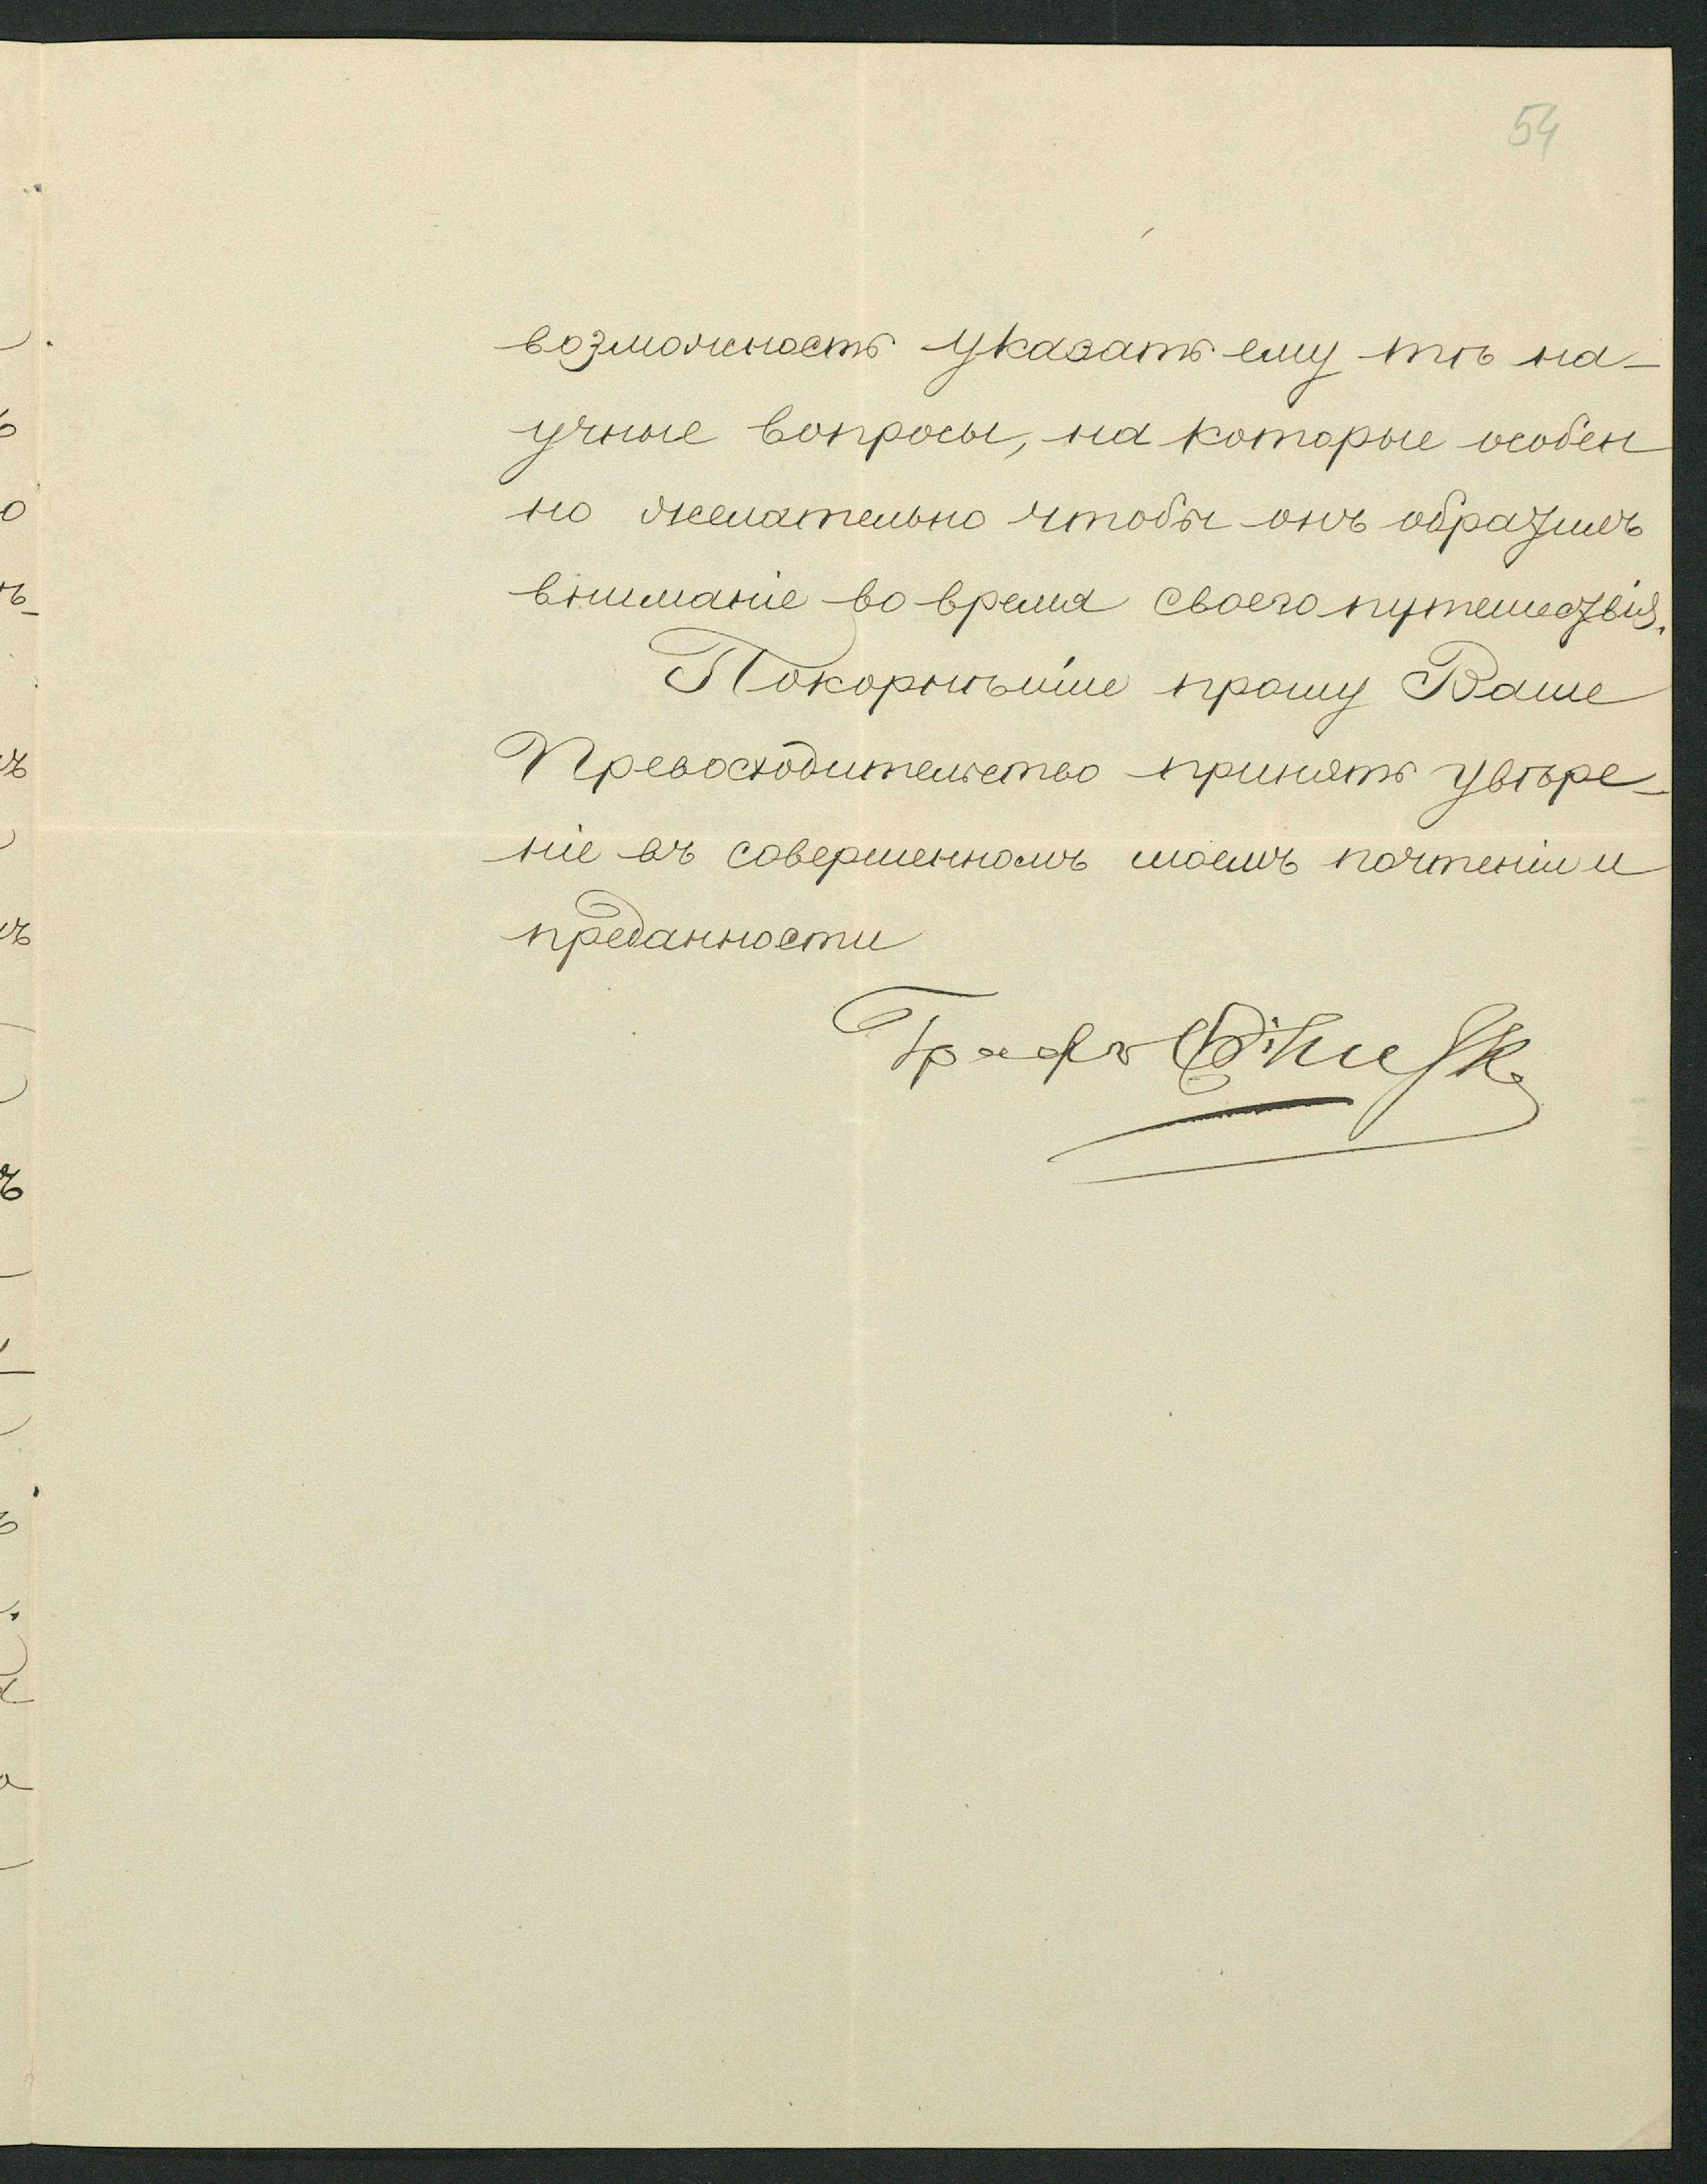 54
возможность указать ему тѣ на-
учные вопросы, на которые особен
но желательно чтобы онъ обратилъ
вниманіе во время своего путешествія.
Покорнѣйше прошу Ваше
Превосходительство принять увѣре-
ніе въ совершенномъ моемъ почтеніи и
преданности
Графъ